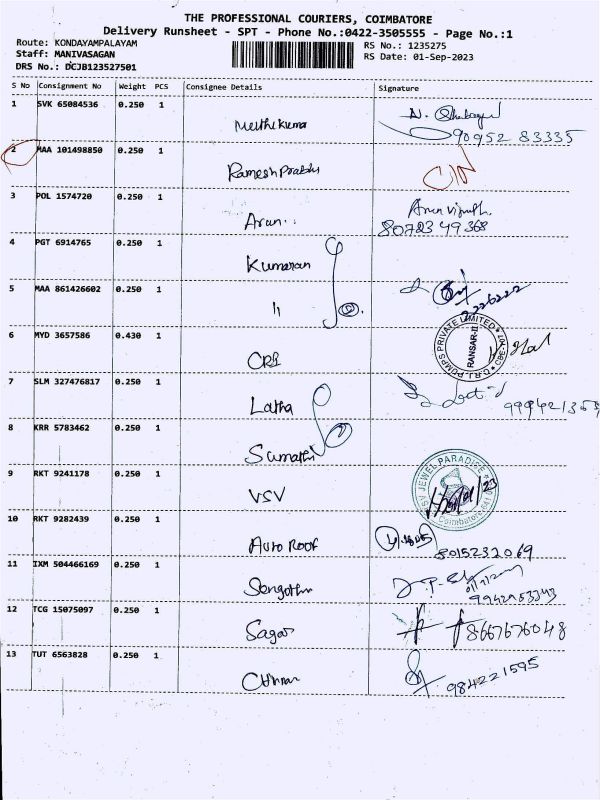 THE PROFESSIONAL COURIERS, COIMBATORE
Delivery Runsheet - SPT - Phone No.:0422-3505555 - Page No.:1
Route: KONDAYAMPALAYAM RS No.: 1235275
Staff: MANIVASAGAN RS Date: 01-Sep-2023
DRS No.: DCJB123527501
S No Consignment No Weight PCS Consignee Details Signature
1 SVK 65084536 0.250 1
90952 83335
2 MAA 101498850 0.250 1
Ramesh Prabhu
3 POL 1574720 0.250 1
Arun 80723 49368
4 PGT 6914765 0.250 1
Kumaran
5 MAA 861426602 0.250 1
11
6 MYD 3657586 0.430 1
CRI C.R.I. PUMPS PRIVATE LIMITED
7 SLM 327476817 0.250 1
Latha
8 KRR 5783462 0.250 1
Sumathi
9 RKT 9241178 0.250 1
VSV JEWEL PARADISE Coimbatore
10 RKT 9282439 0.250 1
Auto Roof 8015232069
11 IXM 504466169 0.250 1
12 TCG 15075097 0.250 1
Sagar 8667676048
13 TUT 6563828 0.250 1
984221595